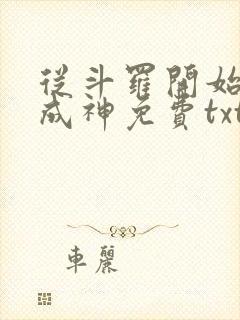 從斗羅開始
成神免費txt
車麗